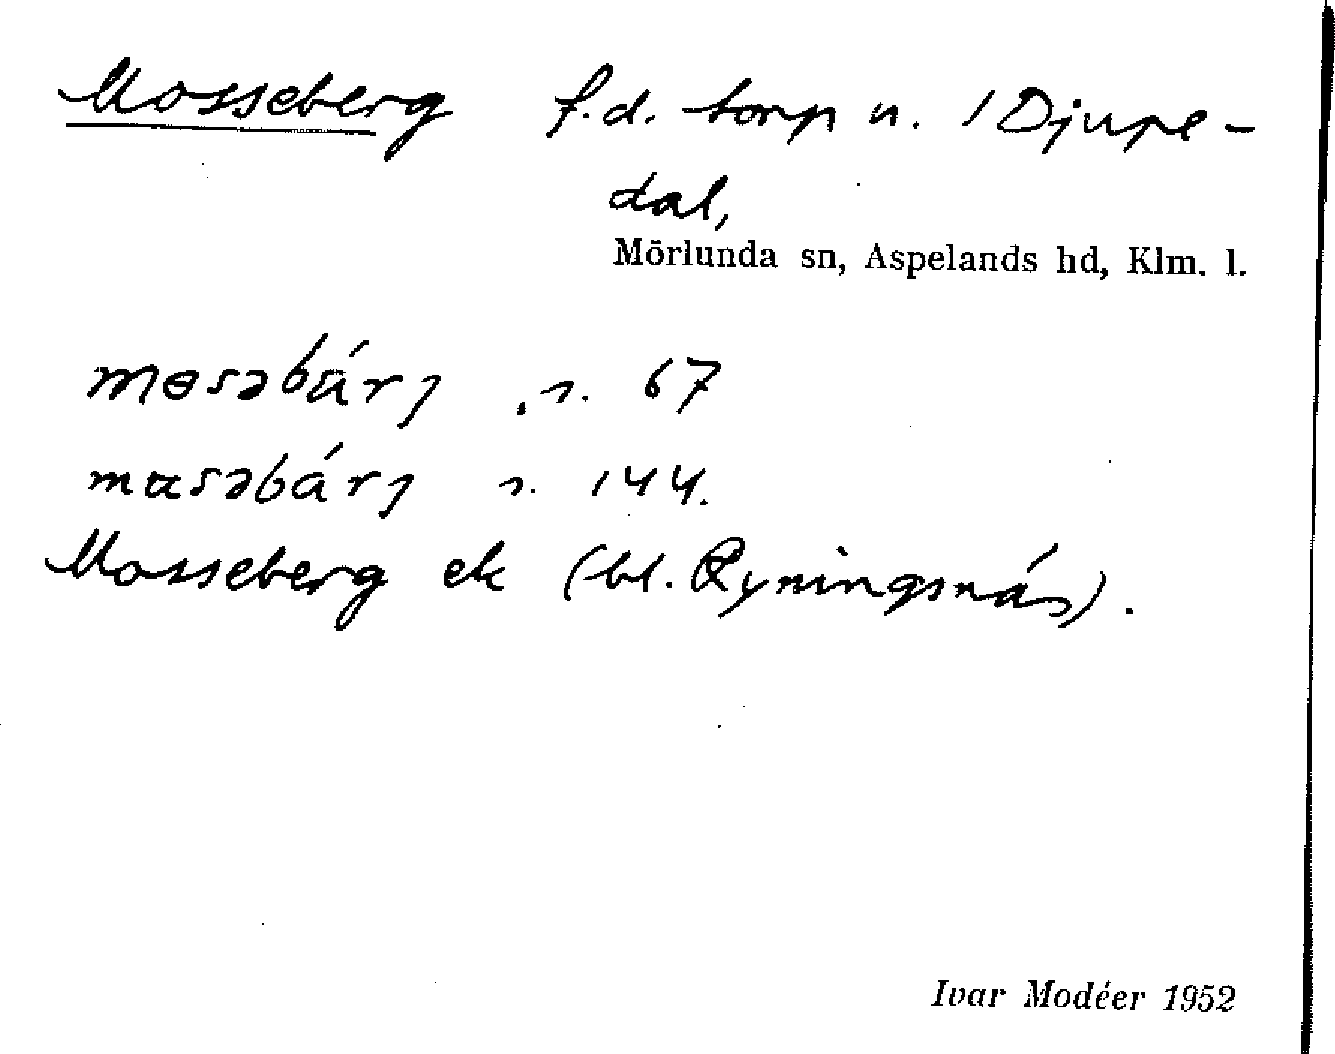 Mosseberg f.d. torp u. 1 Djupe-
dal,
Mörlunda sn, Aspelands hd, Klm. l.
mɵsəbárj s. 67
musəbárj s. 144.
Mosseberg ek (bl. Ryningsnäs).
Ivar Modéer 1952